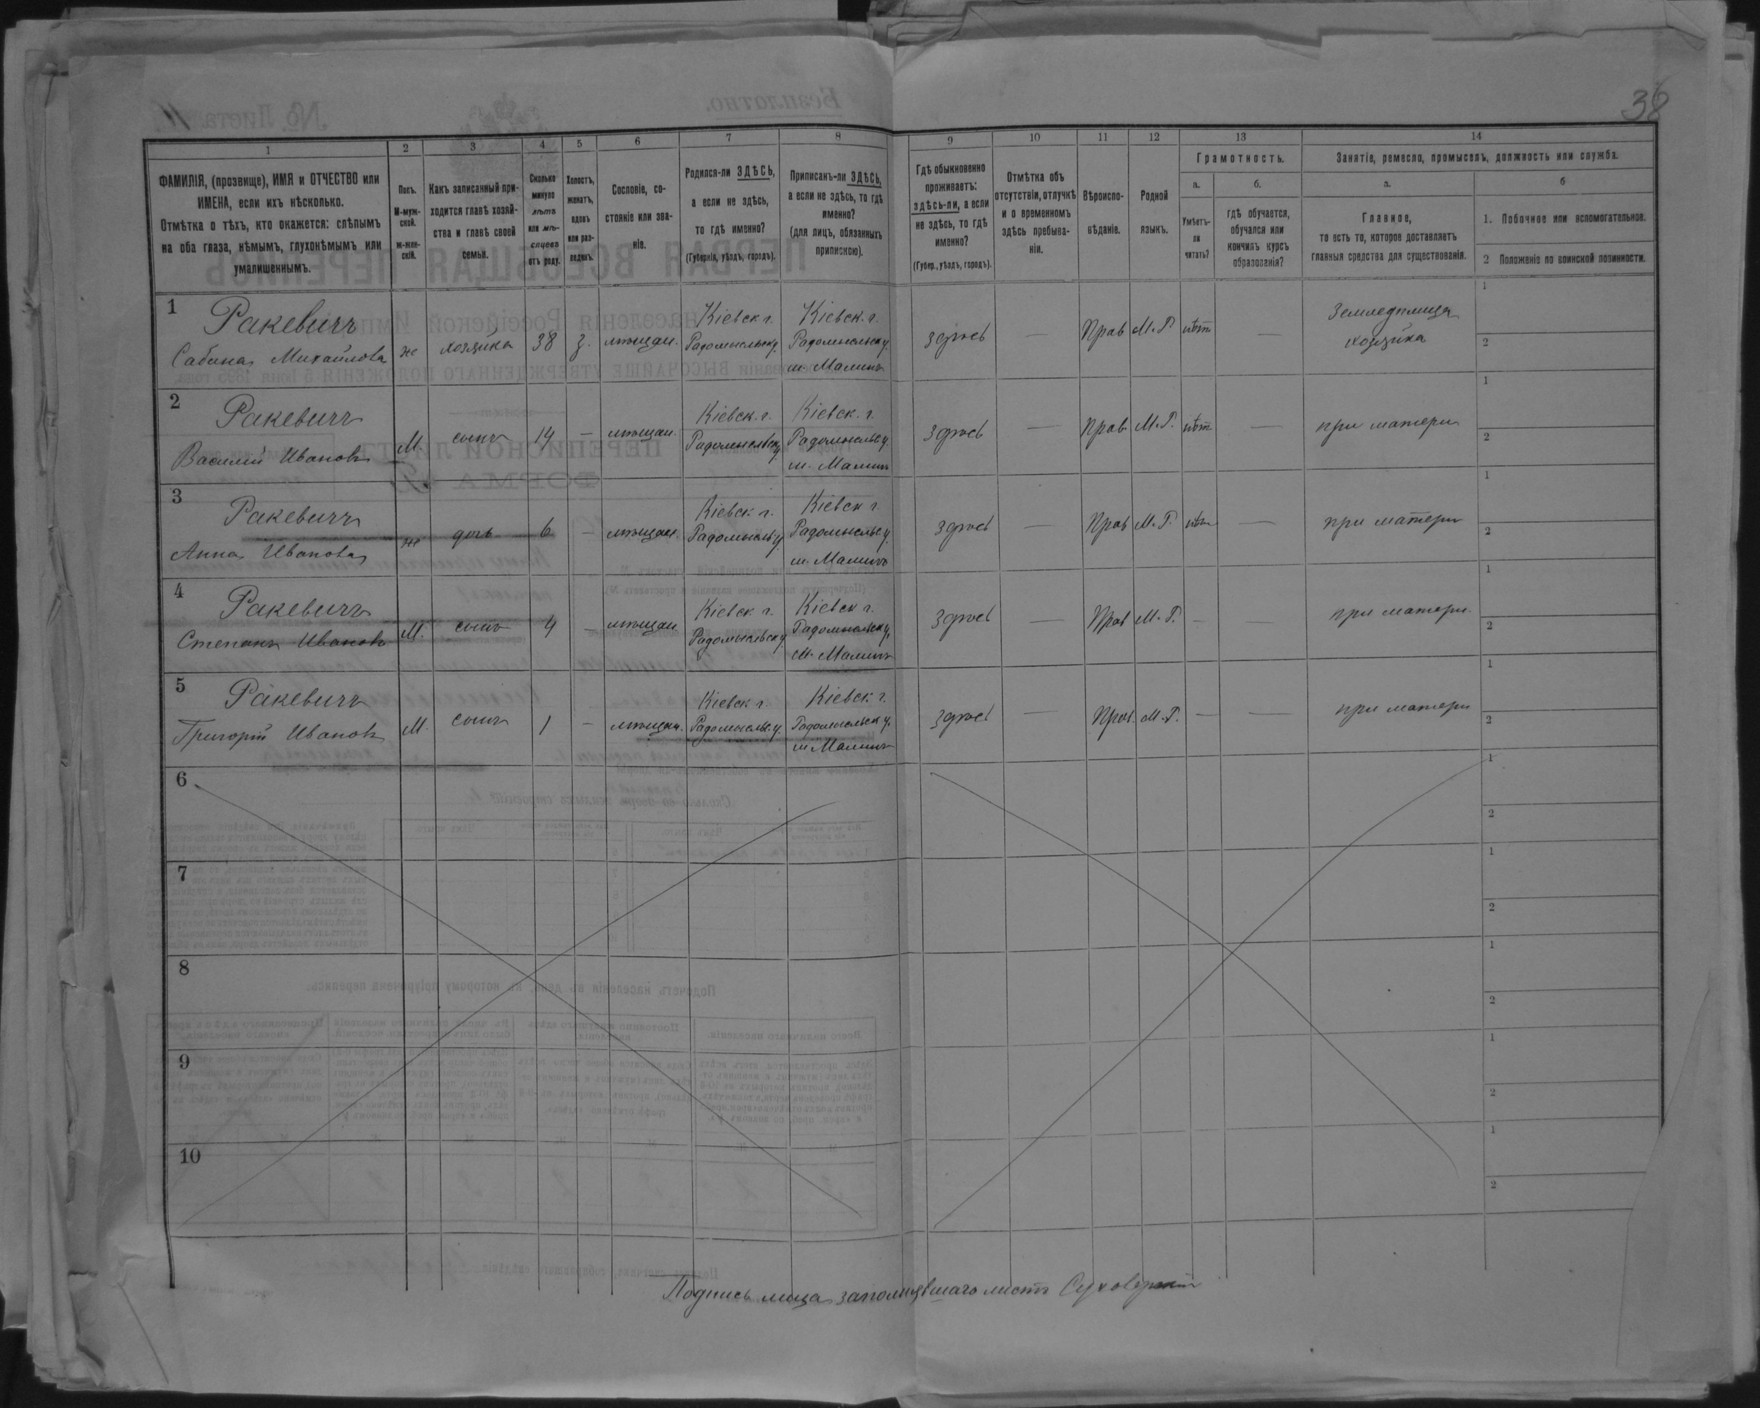 38
1
2
3
4
5
6
7
8
9
10
11
12
13
14
ФАМИЛІЯ, (прозвище), ИМЯ и ОТЧЕСТВО или
ИМЕНА, если ихъ нѣсколько.
Отмѣтка о тѣхъ, кто окажется: слѣпымъ
на оба глаза, нѣмымъ, глухонѣмымъ или
умалишеннымъ.
Полъ.
М-муж-
ской.
ж-жен-
скій.
Какъ записанный при-
ходится главѣ хозяй-
ства и главѣ своей
семьи.
Сколько
минуло
лѣтъ
или мѣ-
сяцевъ
отъ роду.
Холостъ,
женатъ,
вдовъ
или раз-
веденъ.
Сословіе, со-
стояніе или зва-
ніе.
Родился-ли ЗДѢСЬ,
а если не здѣсь,
то гдѣ именно?
(Губернія, уѣздъ, городъ).
Приписанъ-ли ЗДѢСЬ,
а если не здѣсь, то гдѣ
именно?
(для лицъ, обязанныхъ
припискою).
Гдѣ обыкновенно
проживаетъ:
здѣсь-ли, а если
не здѣсь, то гдѣ
именно?
(Губер., уѣздъ, городъ).
Отмѣтка объ
отсутствіи, отлучкѣ
и о временномъ
здѣсь пребыва-
ніи.
Вѣроиспо-
вѣданіе.
Родной
языкъ.
Грамотность.
а.
Умѣетъ-
ли
читать?
б.
гдѣ обучается,
обучался или
кончилъ курсъ
образованія?
Занятіе, ремесло, промыселъ, должность или служба.
а.
Главное,
то есть то, которое доставляетъ
главныя средства для существованія.
б
1. Побочное или вспомогательное.
2 Положеніе по воинской повинности.
1 Ракевичъ
Сабина Михайлова же хозяйка 38 з. мѣщан. Кіевск г. Радомысльск у. Кіевск. г. Радомысльск у м. Малинъ здѣсь — Прав М.Р. нѣт — Земледѣлица хозяйка 1 2
2 Ракевичъ
Василій Ивановъ М. сынъ 14 — мѣщан. Кіевск. г. Радомысльск у Кіевск. г. Радомысльс у м. Малинъ здѣсь — Прав М.Р. нѣт — при матери 1 2
3 Ракевичъ
Анна Иванова же дочь 6 — мѣщан Кіевск г. Радомысльс у Кіевск г. Радомысльс у. м. Малинъ здѣсь — Прав М.Р. нѣт — при матери 1 2
4 Ракевичъ
Степанъ Ивановъ М. сынъ 4 — мѣщан Кіевск г. Радомысльск у. Кіевск г. Радомысльск у. м. Малинъ здѣсь — Прав М.Р. — — при матери. 1 2
5 Ракевичъ
Григорій Ивановъ М. сынъ 1 — мѣщан. Кіевск г. Радомысльс. у. Кіевск г. Радомысльск у. м Малинъ здѣсь — Прав. М.Р. — — при матери 1 2
6 1 2
7 1 2
8 1 2
9 1 2
10 1 2
Подпись лица заполнявшаго листъ